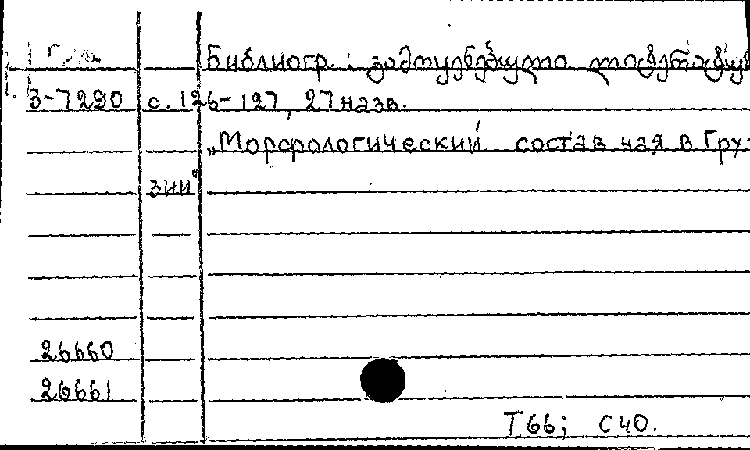 Библиогр.: გამოყენებული
3-7220 с. 126-127, 27 назв.
„Морфологический состав чая в Гру-
зии"
26660
26661
Т66; С40.